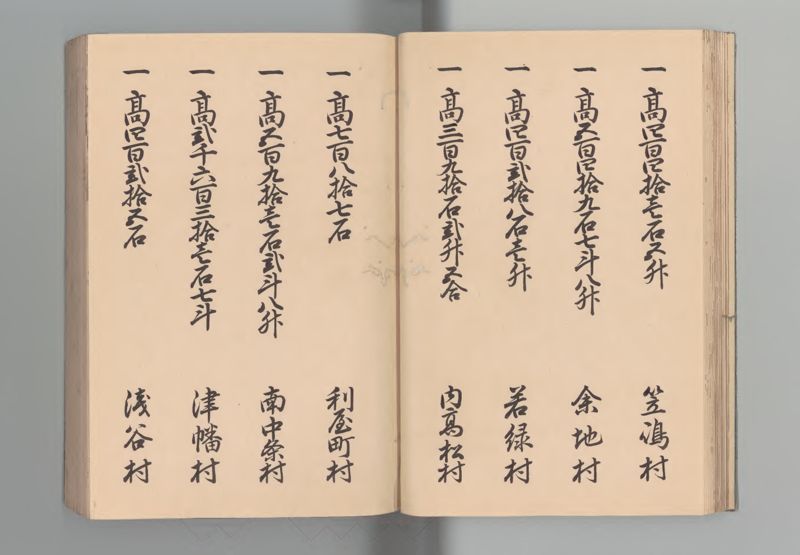 一 高四百四拾壱石五升 笠嶋村
一 高五百四拾九石七斗八升 余地村
一 高四百弐拾八石壱升 若緑村
一 高三百九拾石弐升五合 内高松村
一 高七百八拾七石 利屋町村
一 高五百九拾壱石弐斗八升 南中条村
一 高弐千六百三拾壱石七斗 津幡村
一 高四百弐拾五石 浅谷村